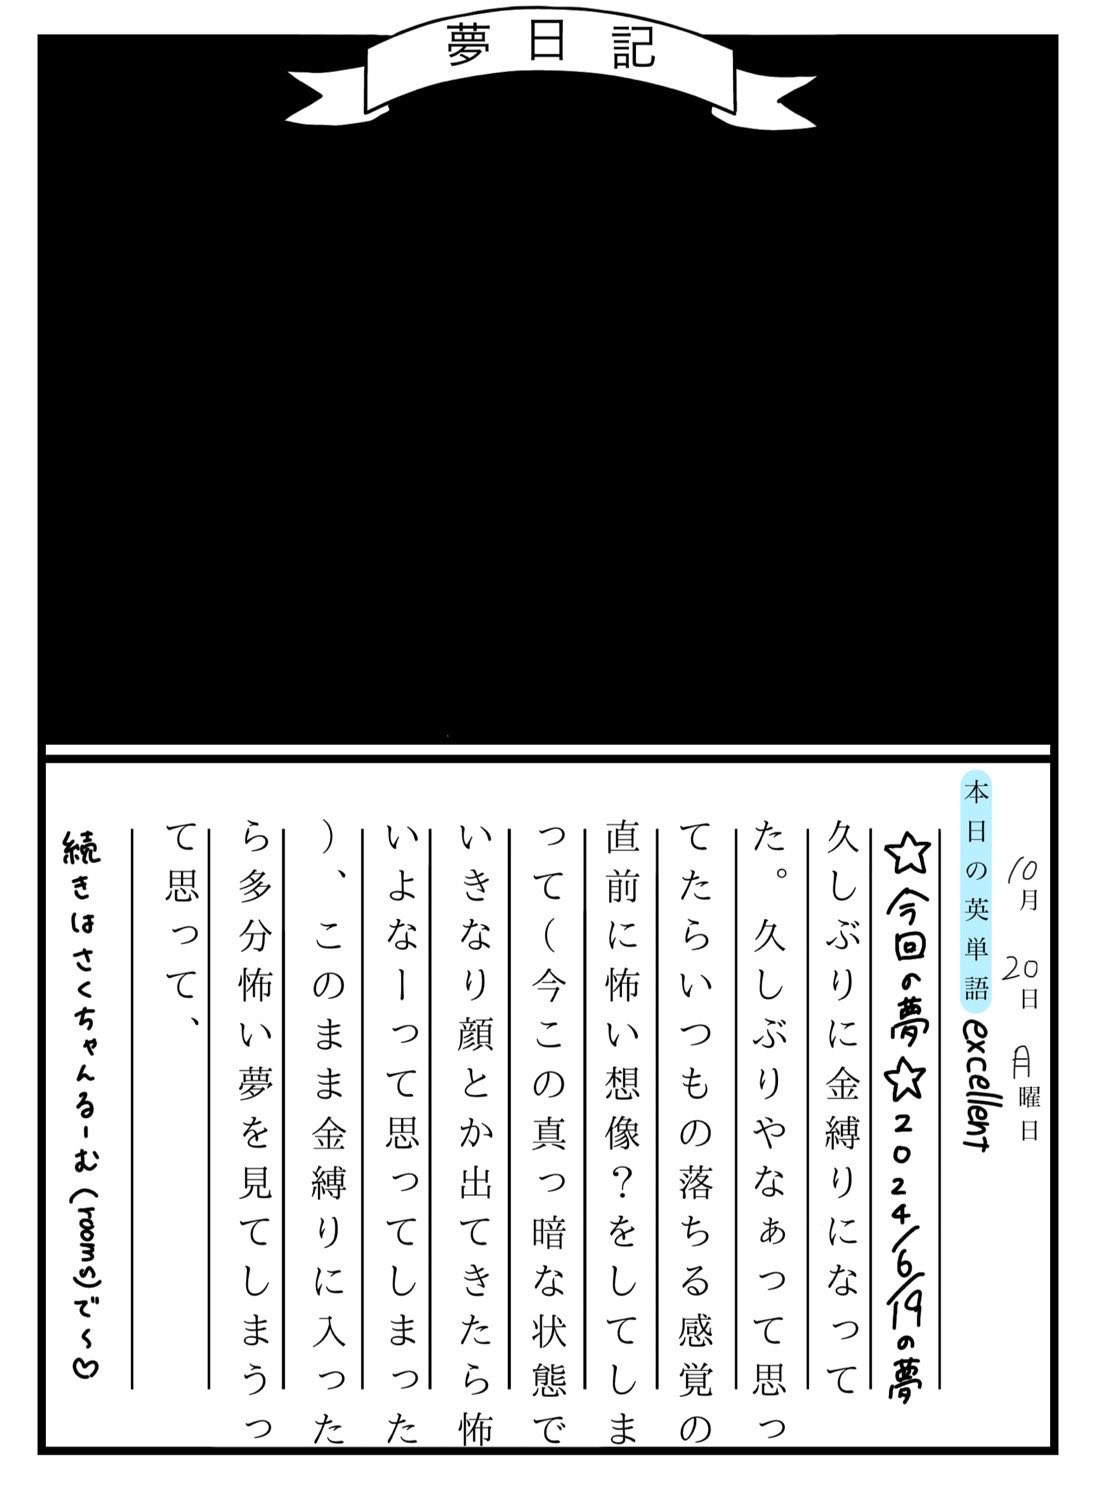 夢日記
10月 20日 月曜日
本日の英単語 excellent
☆今回の夢☆2024/6/19の夢
久しぶりに金縛りになって
た。久しぶりやなぁって思っ
てたらいつもの落ちる感覚の
直前に怖い想像？をしてしま
って（今この真っ暗な状態で
いきなり顔とか出てきたら怖
いよなーって思ってしまった
）、このまま金縛りに入った
ら多分怖い夢を見てしまうっ
て思って、
続きはさくちゃんるーむ(rooms)で〜♡